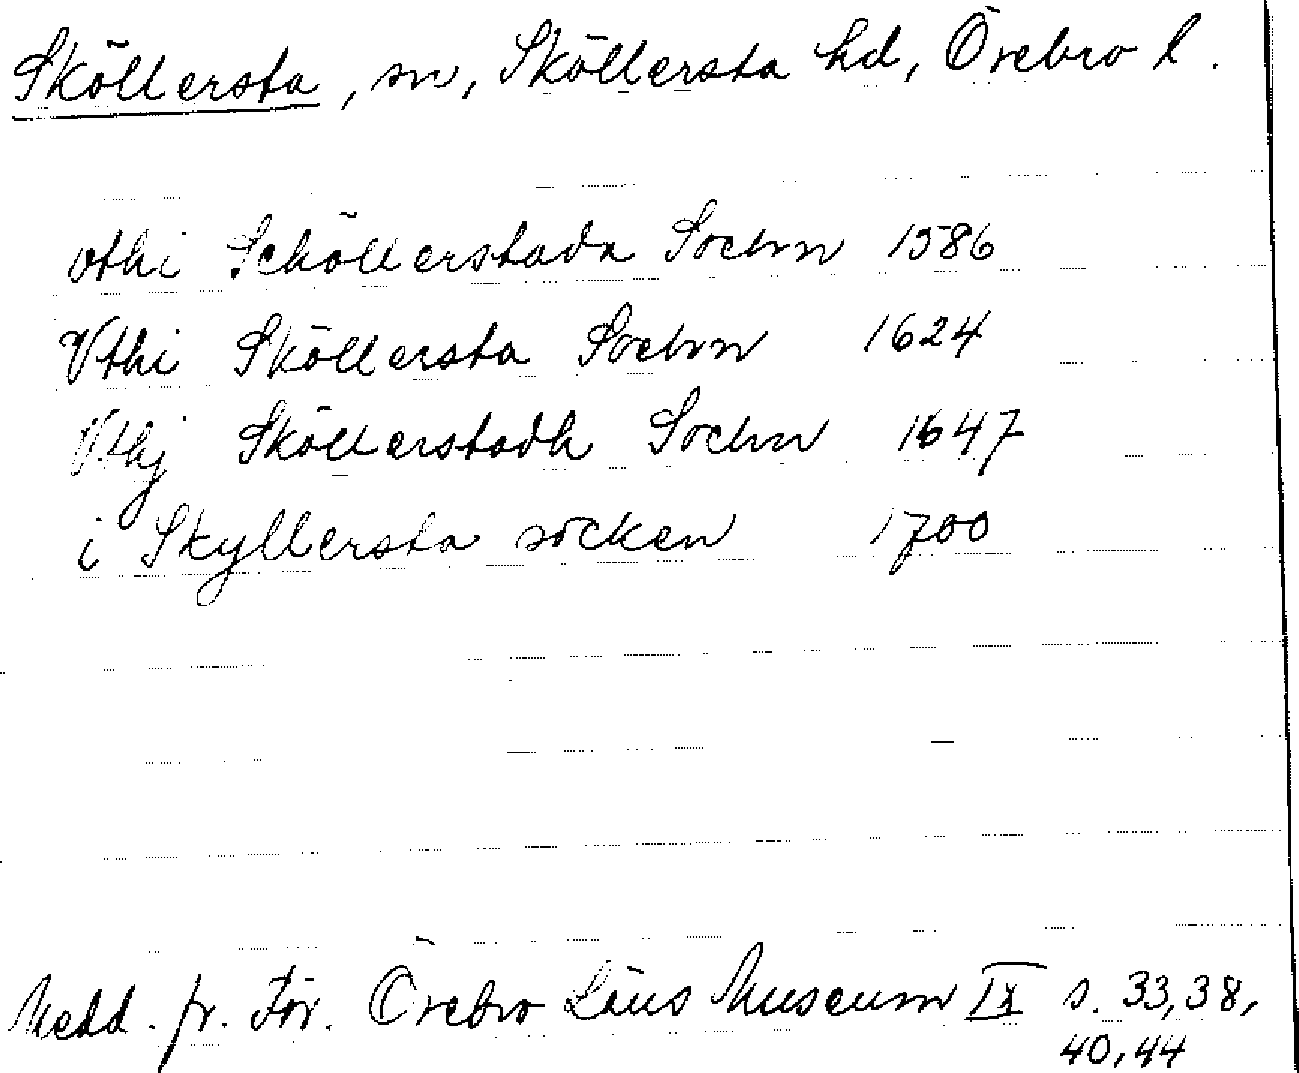 Sköllersta, sn, Sköllersta hd, Örebro l.
vthi Schöllerstada Sochn 1586
Vthi Sköllersta Sochn 1624
Vthj Sköllerstadh Sochn 1647
i Skyllersta socken 1700
Medd. fr. För. Örebro Läns Museum IX s. 33, 38,
40, 44